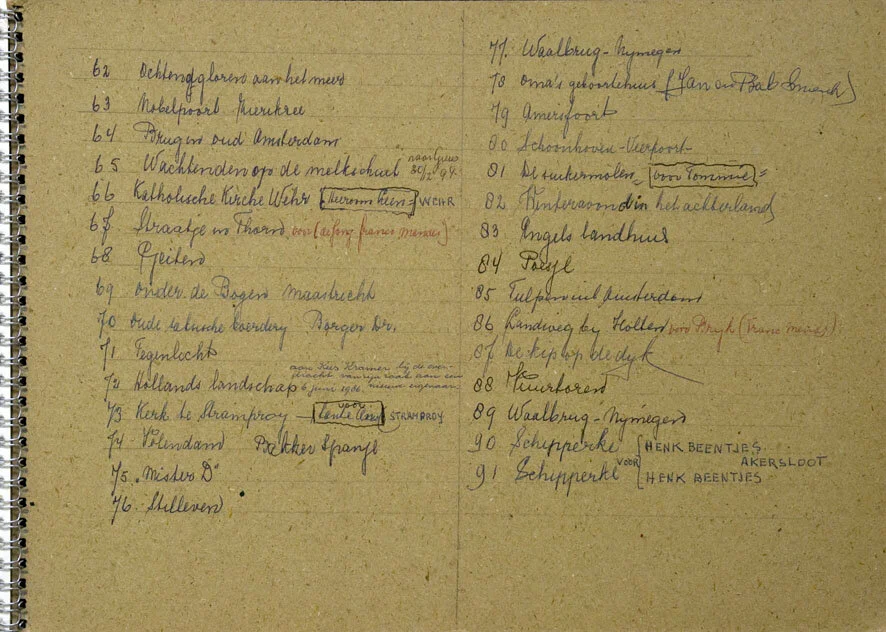 62 Ochtendgloren aan het meer
63 Nobelpoort Zierikzee
64 Brugen oud Amsterdam
65 Wachtenden op de melkschuit naar 30/2 94
66 Katholische Kirche Wehr Heeroom Leen = WEHR
67 Straatje in Thorn voor (de Jong frans
68 Geiten
69 onder de Bogen Maastricht
70 Oude saksische boerdery Borger Dr.
71 Tegenlicht
72 Hollands landschap aan Kees Kramer bij de over-
dracht van zijn zaak aan een
6 juni 1986. nieuwe eigenaar.
73 Kerk te Stramproy — voor tante STRAMPROY
74 Volendam Bakker Spanje
75 "Mister D"
76 Stilleven
77. Waalbrug - Nymegen
78 Oma's geboortehuis (Jan en Bab
79 Amersfoort
80 Schoonhoven - Veerpoort -
81 De suikermolen = voor Tommie =
82 Winteravond in het achterland
83 Engels landhuis
84 Poesje
85 Tulpen uit Amsterdam
86 Landweg by Holten voor Bryk (frans
87 De kip op de dyk
88 Vuurtoren
89 Waalbrug - Nymegen
90 Schipperke HENK BEENTJES
voor AKERSLOOT
91 Schipperke HENK BEENTJES